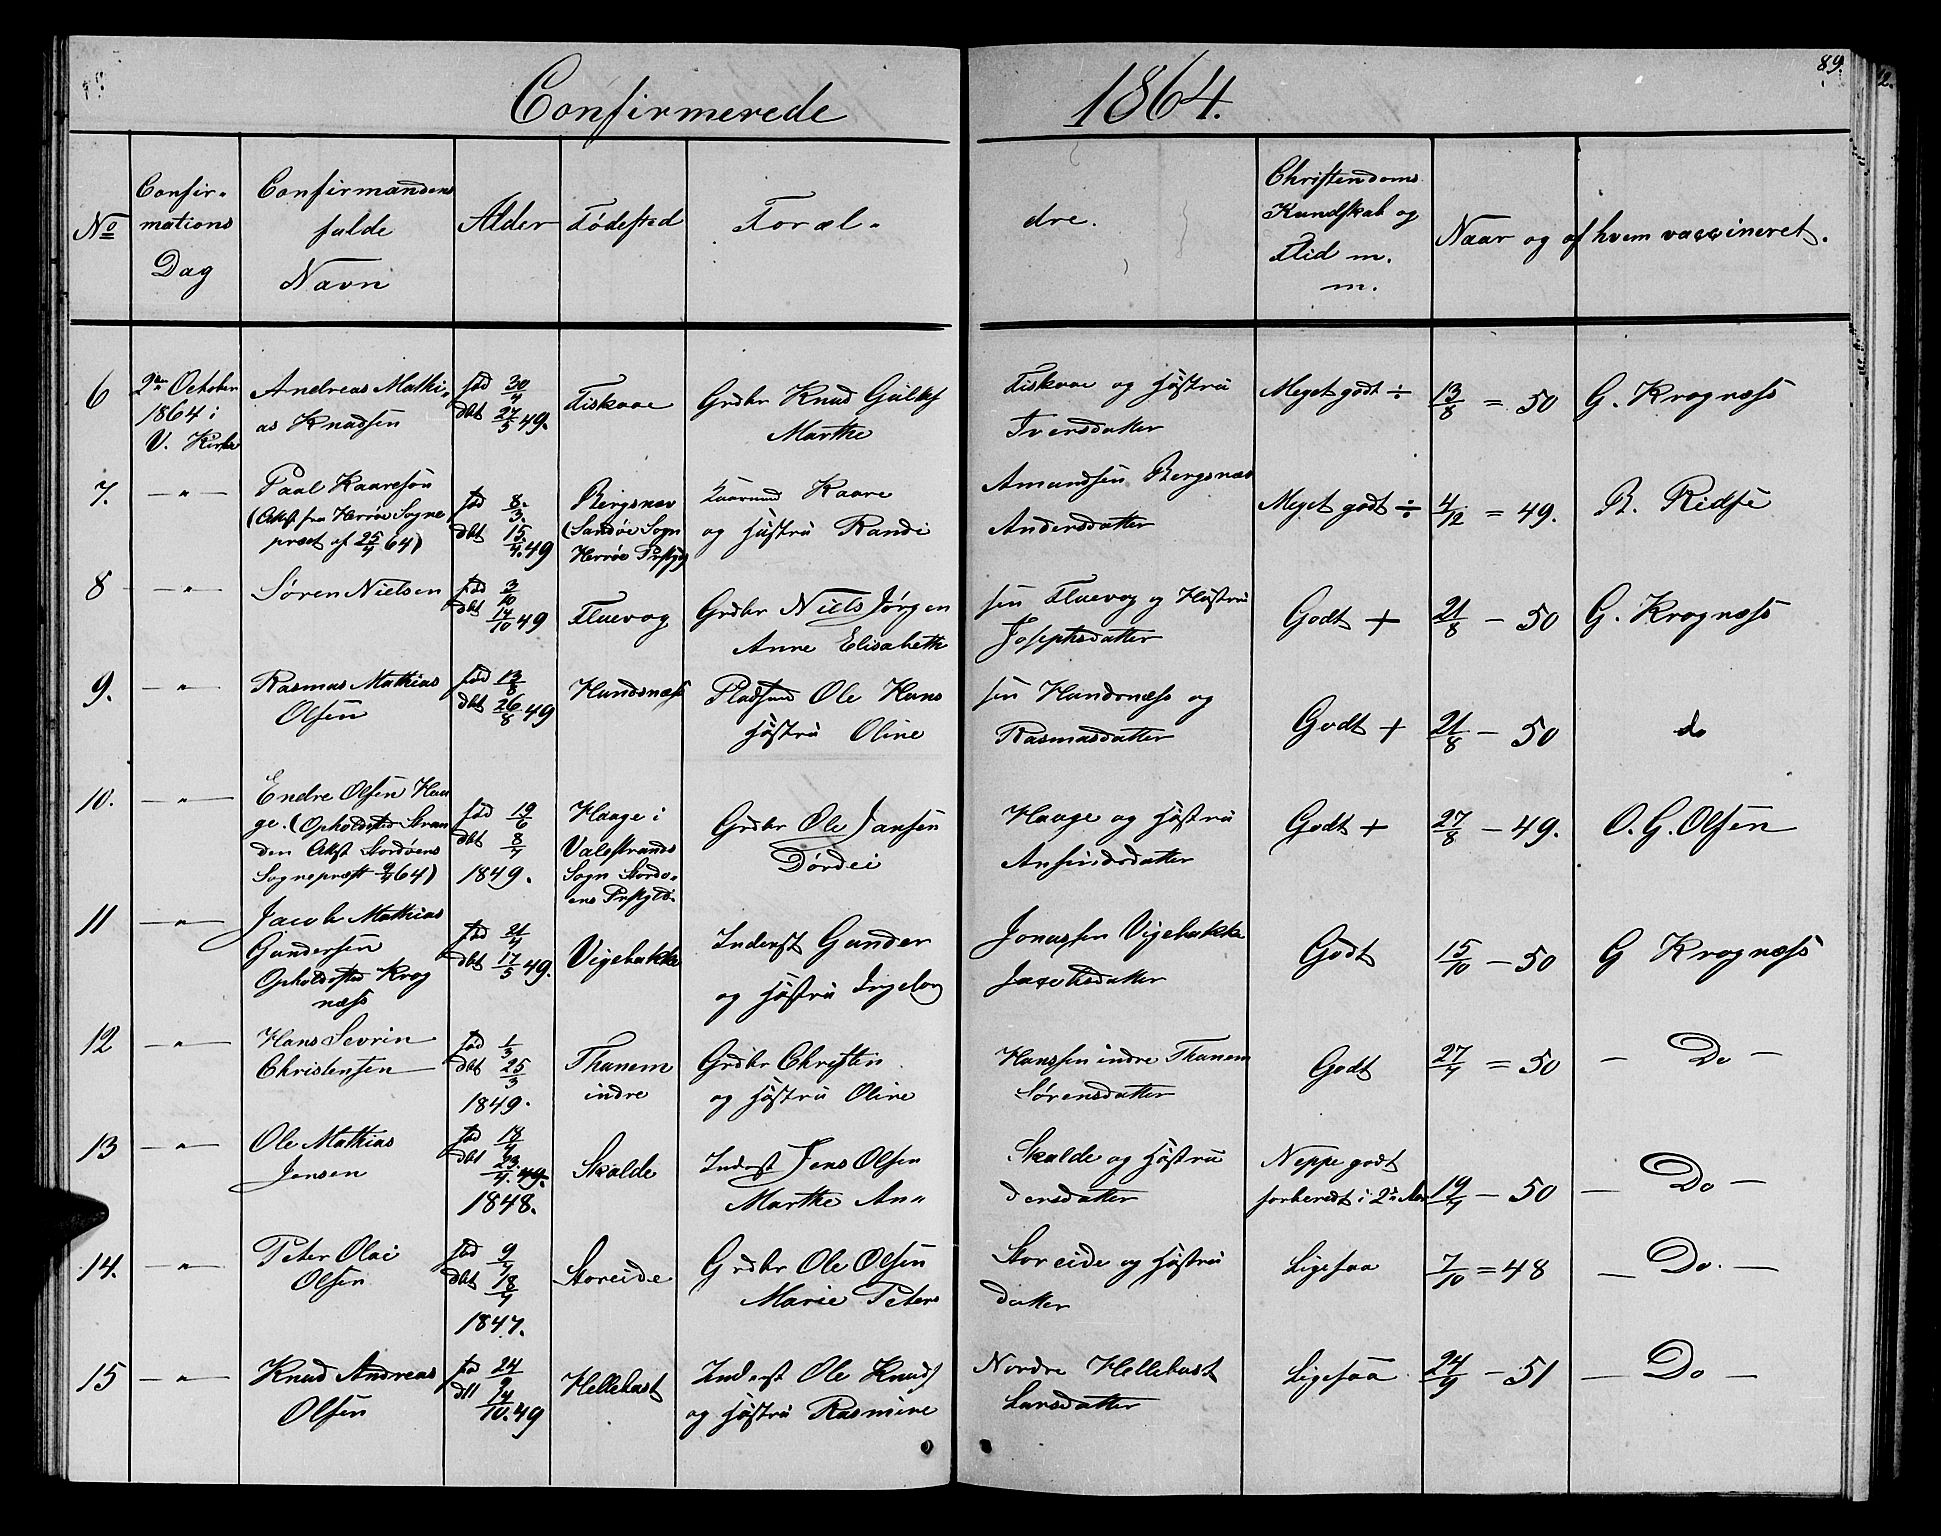 Confirmerede 1864.
89.
No
Confir-
mations
Dag
Confirmandens
fulde
Navn
Alder
Fødested
Foræl-
dre.
Christendoms
Kundskab og
Flid m.
m.
Naar og af hvem vaccineret.
6
2den October
1864 i
V. Kirke
Andreas Mathi-
as Knudsen
fød 30/4
dbt 27/5 49.
Fiskaae
Grdbr Knud
Marthe
Fiskaae og Hustru
Iversdatter
Meget godt ÷
13/8 = 50
G. Krognæss
7.
—"—
Paal Kaaresøn
(Attst fra Herrøe Sogne
præst af 25/4 64)
fød 8/3.
dbt 15/4. 49
Bergsnæs
(Sandøe Sogn
Herrøe Prstgjd
Kaare
og Hustru Randi
Amundsen Bergsnæs
Andersdatter
Meget godt ÷
4/12 = 49.
B. Ridse
8
—"—
Søren Nielsen
fød 3/10
dbt 14/10 49
Fluevog
Grdbr Niels Jørgen
Anne Elisabeth
sen Fluevog og Hustru
Josephsdatter
Godt +
21/8 — 50
G. Krognæss
9.
—"—
Rasmus Mathias
Olsen
fød 13/8
dbt 26/8 49
Hundsnæss
Pladsmd Ole Hans
Hustru Oline
sen Hundsnæss og
Rasmusdatter
Godt +
21/8 — 50
do
10.
—"—
Endre Olsen Haa
ge. (Opholdsted Stran
den Attst Stordøens
Sognepræst 64)
fød 19/6
dbt 8/7
1849.
Haage i
Valestrands
Sogn Stordø-
ens Prstgld.
Grdbr Ole Jansen
Dørdei
Haage og Hustru
Ansindsdatter
Godt +
27/8 — 49.
O. G. Olsen
11
—"—
Jacob Mathias
Gundersen
Opholdsted Krog
næss
fød 21/4
dbt 17/5 49.
Vigebakke
Inderst Gunder
og Hustru Ingeborg
Jonassen Vigebakke
Jacobsdatter
Godt
15/10 — 50
G Krognæss
12
—"—
Hans Sevrin
Christensen
fød 1/3
dbt 25/3
1849.
Thunem
indre
Grdbr Christen
og Hustru Oline
Hanssen indre Thunem
Sørensdatter
Godt
27/7 = 50
— Do —
13
—"—
Ole Mathias
Jensen
fød 18/4
dbt 23/4. 49.
1848.
Skalde
Inderst Jens Olsen
Marthe An-
Skalde og Hustru
dersdatter
Neppe godt
forberedt i 2
19/7 — 50
— Do —
14.
—"—
Peter Olai
Olsen
fød 9/4
dbt 18/4
1847.
Storeide
Grdbr Ole Olsen
Marie Peters
Storeide og Hustru
datter
Ligesaa
7/10 = 48
— Do. —
15
—"—
Knud Andreas
Olsen
fød 24/9
dbt 14/10. 49
Hellebust
Inderst Ole Knuds
og Hustru Rasmine
Nordre Hellebust
Larsdatter
Ligesaa
24/9 — 51
— Do —